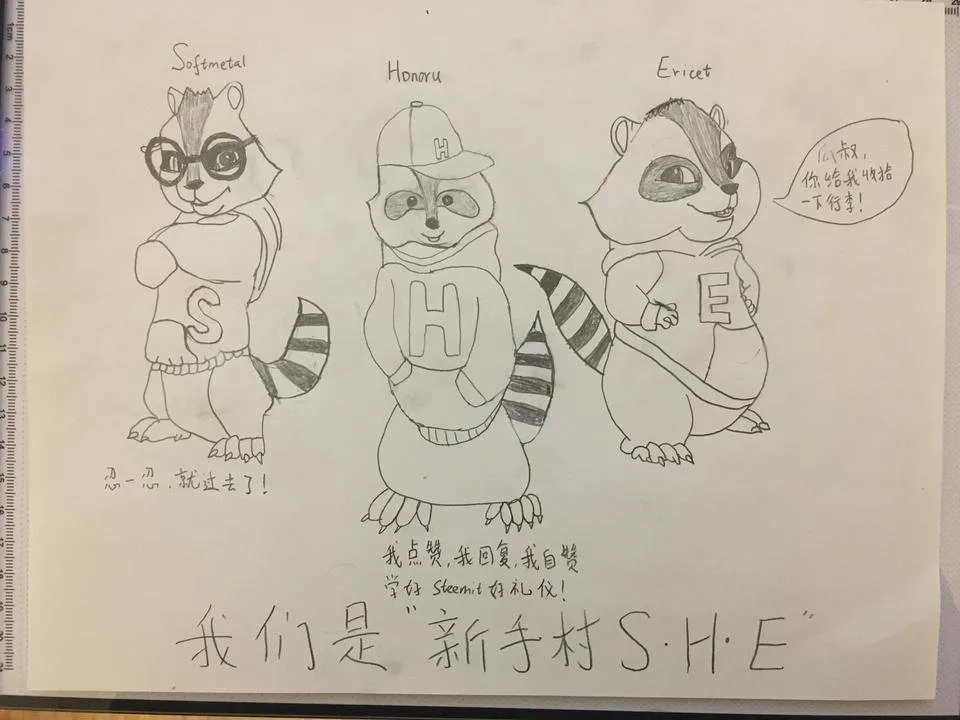 Softmetal
Honoru
Ericet
H
瓜叔,
你给我收拾
一下行李!
S
H
E
忍一忍,就过去了!
我点赞,我回复,我自赞
学好 Steemit 好礼仪!
我们是"新手村 S·H·E"